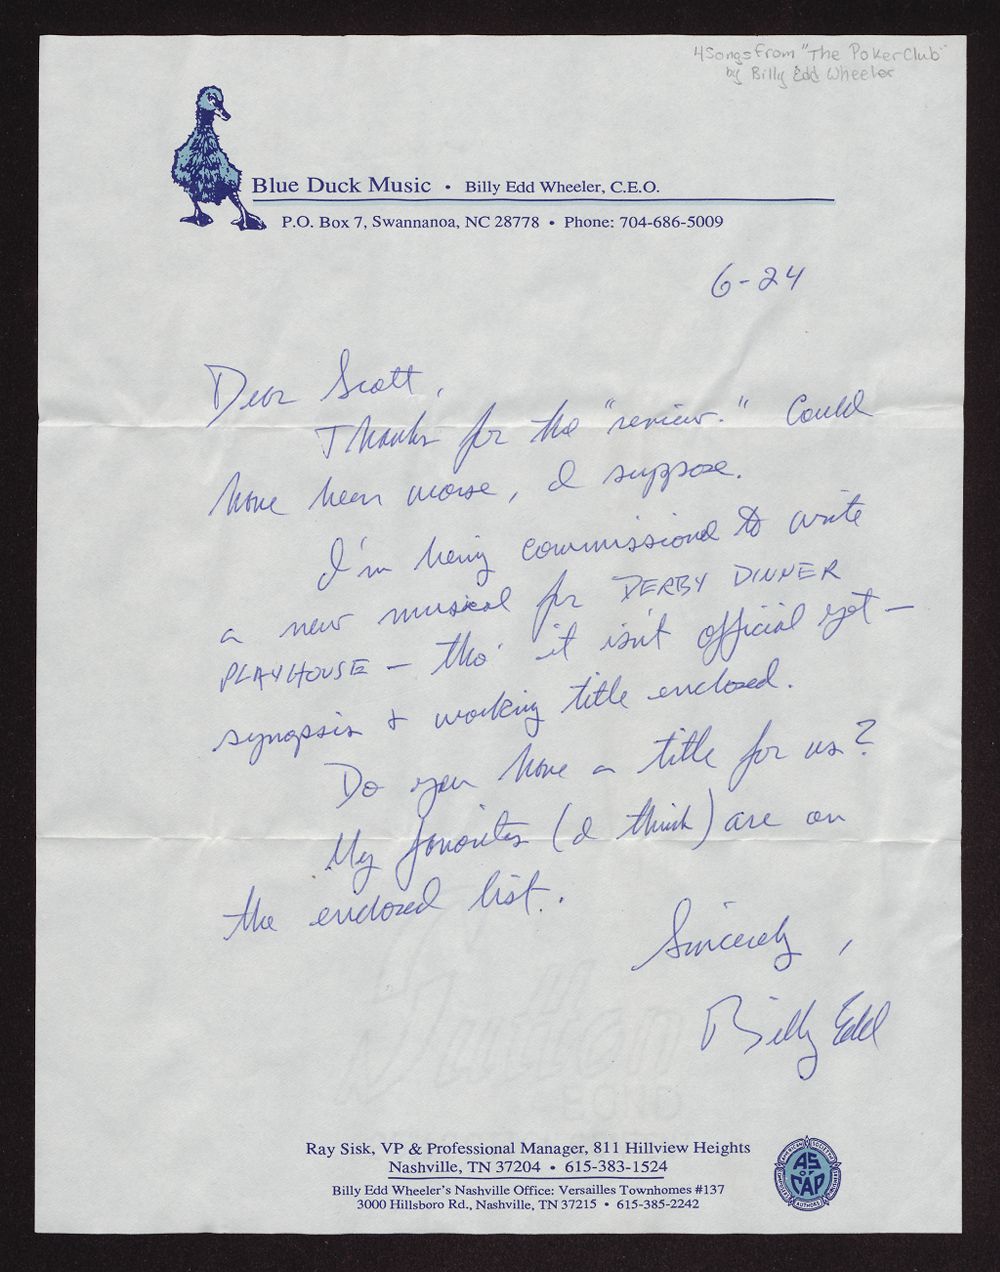 4 Songs from "The Poker Club"
by Billy Edd Wheeler
Blue Duck Music • Billy Edd Wheeler, C.E.O.
P.O. Box 7, Swannanoa, NC 28778 • Phone: 704-686-5009
6-24
Dear Scott,
Thanks for the "review." Could
have been worse, I suppose.
I'm being commissioned to write
a new musical for DERBY DINNER
PLAYHOUSE – tho' it isn't official yet –
synopsis & working title enclosed.
Do you have a title for us?
My favorites (I think) are on
the enclosed list.
Sincerely,
Billy Edd
BOND
Ray Sisk, VP & Professional Manager, 811 Hillview Heights
Nashville, TN 37204 • 615-383-1524
Billy Edd Wheeler's Nashville Office: Versailles Townhomes #137
3000 Hillsboro Rd., Nashville, TN 37215 • 615-385-2242
AS
OF
CAP